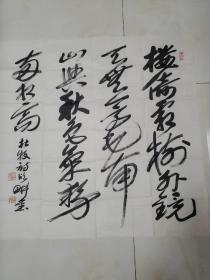 樓倚霜樹外鏡
天無一毫南
山與秋色氣勢
兩相高
杜牧詩